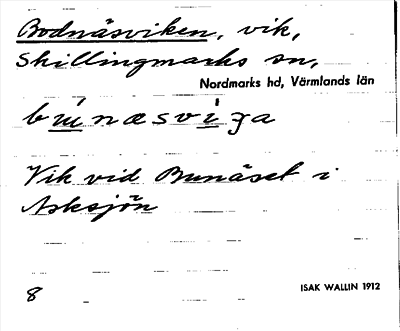 Bodnäsviken, vik,
Skillingmarks sn,
Nordmarks hd, Värmlands län
Vik vid Bunäset i
Asksjön
8
ISAK WALLIN 1912